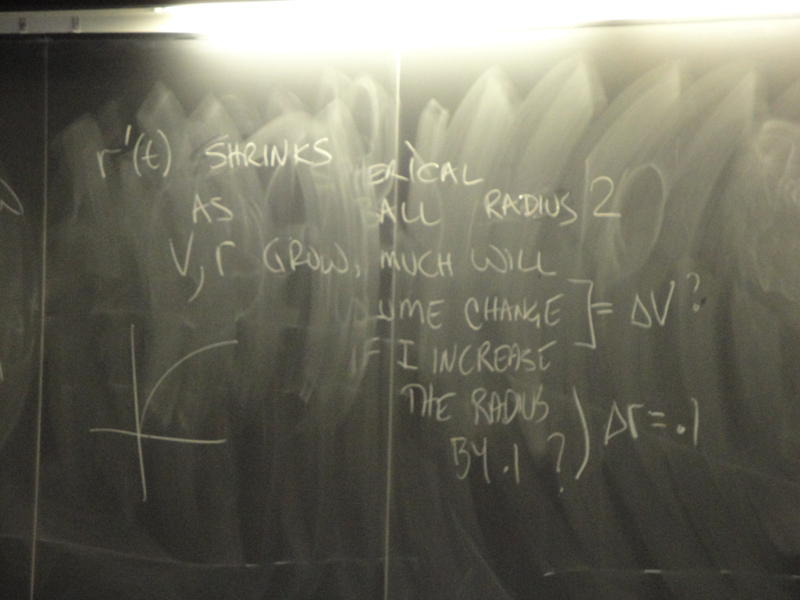 r'(t) SHRINKS
AS
V, r GROW,
ERICAL
BALL RADIUS 2
MUCH WILL
UME CHANGE ] = ΔV?
IF I INCREASE
THE RADIUS
BY .1 ? ) Δr = .1